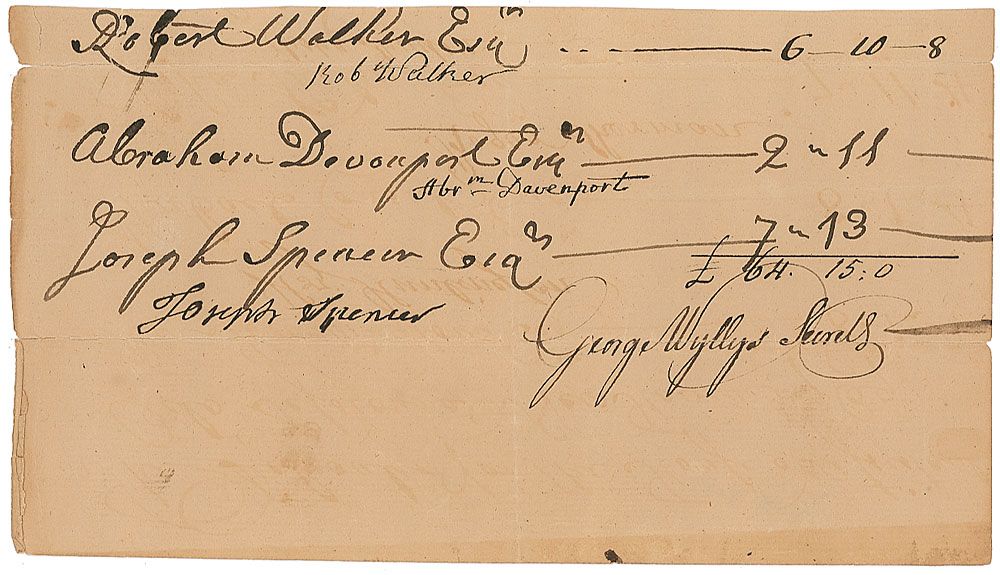 Robert Walker Esqr ... — 6—10—8
Rob Walker
Abraham Davenport Esqr — 2 " 11 —
Abrm Davenport
Joseph Spencer Esqr — 7 " 13 —
£ 64. 15:0
Joseph Spencer
George Wyllys Secrety